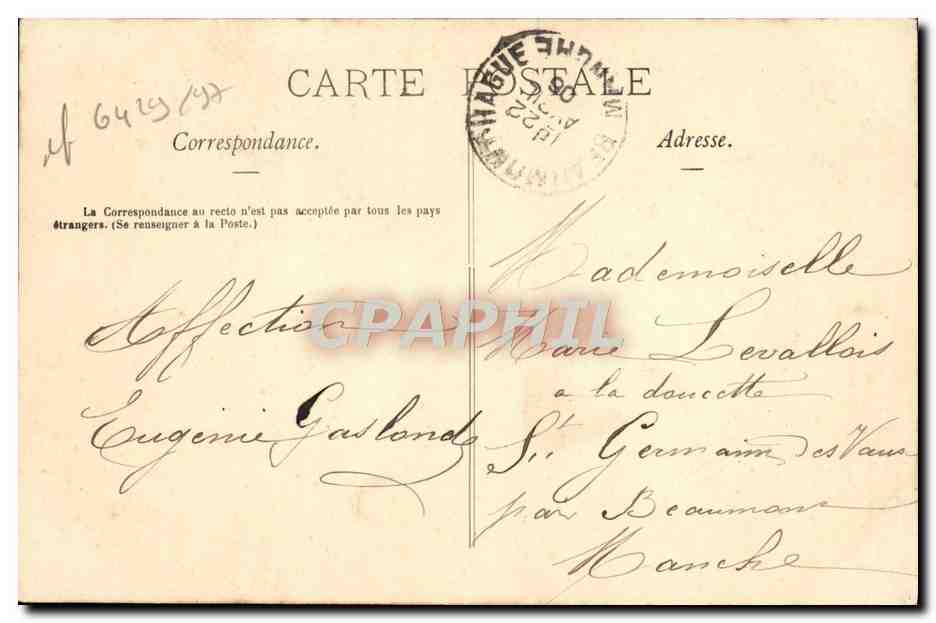 CARTE POSTALE
6429/97
Correspondance.
Adresse.
La Correspondance au recto n'est pas acceptée par tous les pays
étrangers. (Se renseigner à la Poste.)
BEAUMONT-HAGUE MANCHE
22
AVRIL
08
Affection
Eugenie Gaslonde
Mademoiselle
Marie Levallois
a la doucette
St Germain des Vaux
par Beaumont
Manche
CPAPHIL